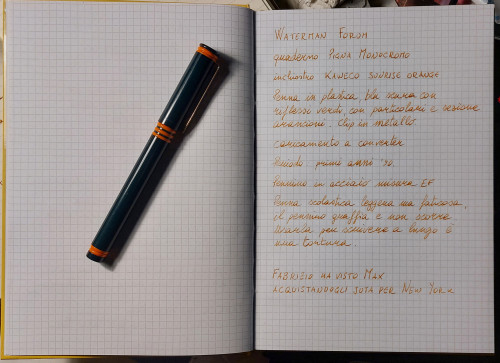 WATERMAN FORUM
quaderno PIGNA MONOCROMO
inchiostro KAWECO SUNRISE ORANGE
Penna in plastica, blu scuro con
riflessi verdi, con particolari e sezione
arancioni. Clip in metallo.
caricamento a converter.
Periodo primi anni '90.
Pennino in acciaio misura EF
Penna scolastica leggera ma faticosa,
il pennino graffia e non scorre.
Usarla per scrivere a lungo è
una tortura.
FABRIZIO HA VISTO MAX
ACQUISTANDOGLI JUTA PER NEW YORK